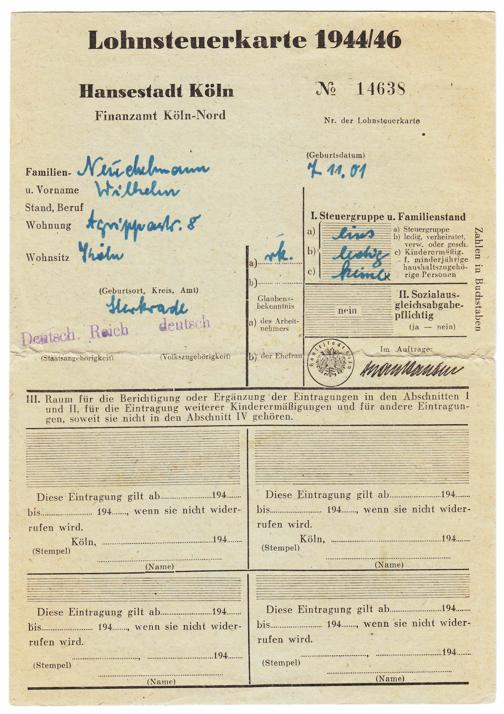 Lohnsteuerkarte 1944/46
Hansestadt Köln
Finanzamt Köln-Nord
№ 14638
Nr. der Lohnsteuerkarte
Familien-
u. Vorname Wilhelm
Stand, Beruf
Wohnung Agrippastr. 8
Wohnsitz Köln
(Geburtsort, Kreis, Amt)
Sterkrade
Deutsch. Reich deutsch
(Staatsangehörigkeit) (Volkszugehörigkeit)
(Geburtsdatum)
7.11.01
a) rk.
b)
Glaubens-
bekenntnis
a) des Arbeit-
nehmers
b) der Ehefrau
I. Steuergruppe u. Familienstand
a) eins
b) ledig
c) keine
a) Steuergruppe
b) ledig, verheiratet,
verw. oder gesch.
c) Kinderermäßig-
f. minderjährige
haushaltszugehö-
rige Personen
Zahlen in Buchstaben
nein
II. Sozialaus-
gleichsabgabe-
pflichtig
(ja — nein)
Im Auftrage:
III. Raum für die Berichtigung oder Ergänzung der Eintragungen in den Abschnitten I
und II, für die Eintragung weiterer Kinderermäßigungen und für andere Eintragun-
gen, soweit sie nicht in den Abschnitt IV gehören.
Diese Eintragung gilt ab 194
bis 194, wenn sie nicht wider-
rufen wird.
Köln, 194
(Stempel)
(Name)
Diese Eintragung gilt ab 194
bis 194, wenn sie nicht wider-
rufen wird.
Köln, 194
(Stempel)
(Name)
Diese Eintragung gilt ab 194
bis 194, wenn sie nicht wider-
rufen wird.
, 194
(Stempel)
(Name)
Diese Eintragung gilt ab 194
bis 194, wenn sie nicht wider-
rufen wird.
, 194
(Stempel)
(Name)